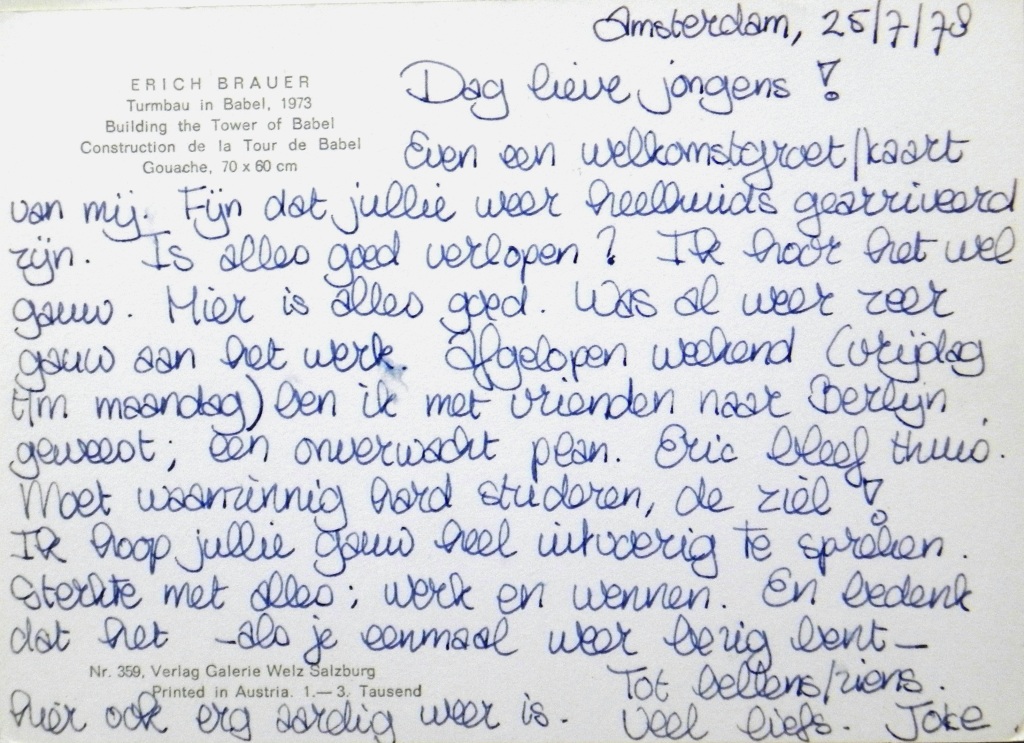 Amsterdam, 25/7/78
ERICH BRAUER
Turmbau in Babel, 1973
Building the Tower of Babel
Construction de la Tour de Babel
Gouache, 70 x 60 cm
Dag lieve jongens !
Even een welkomstgroet/kaart
van mij. Fijn dat jullie weer heelhuids gearriveerd
zijn. Is alles goed verlopen ? Ik hoor het wel
gauw. Hier is alles goed. Was al weer zeer
gauw aan het werk. Afgelopen weekend (vrijdag
t/m maandag) ben ik met vrienden naar Berlijn
geweest; een onverwacht plan. Eric bleef thuis.
Moet waanzinnig hard studeren, de ziel !
Ik hoop jullie gauw heel uitvoerig te spreken.
Sterkte met alles; werk en wennen. En bedenk
dat het -als je eenmaal weer bezig bent-
hier ook erg aardig weer is.
Nr. 359, Verlag Galerie Welz Salzburg
Printed in Austria. 1.—3. Tausend
Tot bellens/ziens.
Veel liefs. Joke